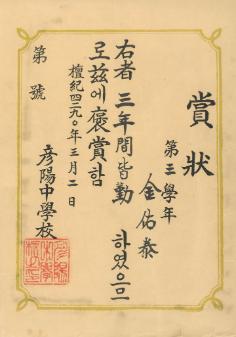 賞狀
第三學年
金佑泰
右者 三年間皆勤 하였으므
로玆에褒賞함
檀紀四二九〇年三月二日
彦陽中學校
第 號